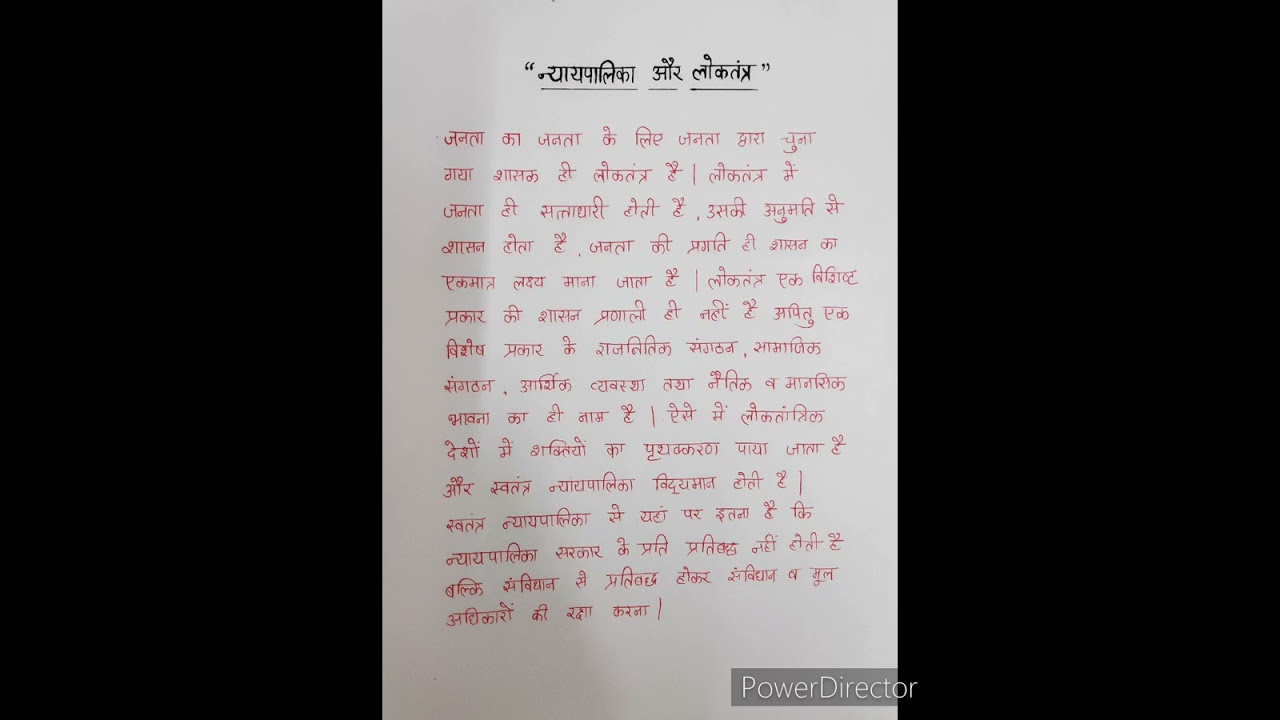 “न्यायपालिका और लोकतंत्र”
जनता का जनता के लिए जनता द्वारा चुना
गया शासक ही लोकतंत्र है |  लोकतंत्र में
जनता ही सत्ताधारी होती है , उसकी अनुमति से
शासन होता है , जनता की प्रगति ही शासन का
एकमात्र लक्ष्य माना जाता है | लोकतंत्र एक विशिष्ट
प्रकार की शासन प्रणाली ही नहीं है अपितु एक
विशेष प्रकार के राजनितिक संगठन , सामाजिक
संगठन , आर्थिक व्यवस्था तथा नैतिक व मानसिक
भावना का ही नाम है | ऐसे में लोकतांत्रिक
देशों में शक्तियों का पृथक्करण पाया जाता है
और स्वतंत्र न्यायपालिका विद्यमान होती है |
स्वतंत्र न्यायपालिका से यहां पर इतना है कि
न्यायपालिका सरकार के प्रति प्रतिबद्ध नहीं होती है
बल्कि संविधान से प्रतिबद्ध होकर संविधान व मूल
अधिकारों की रक्षा करना |
PowerDirector